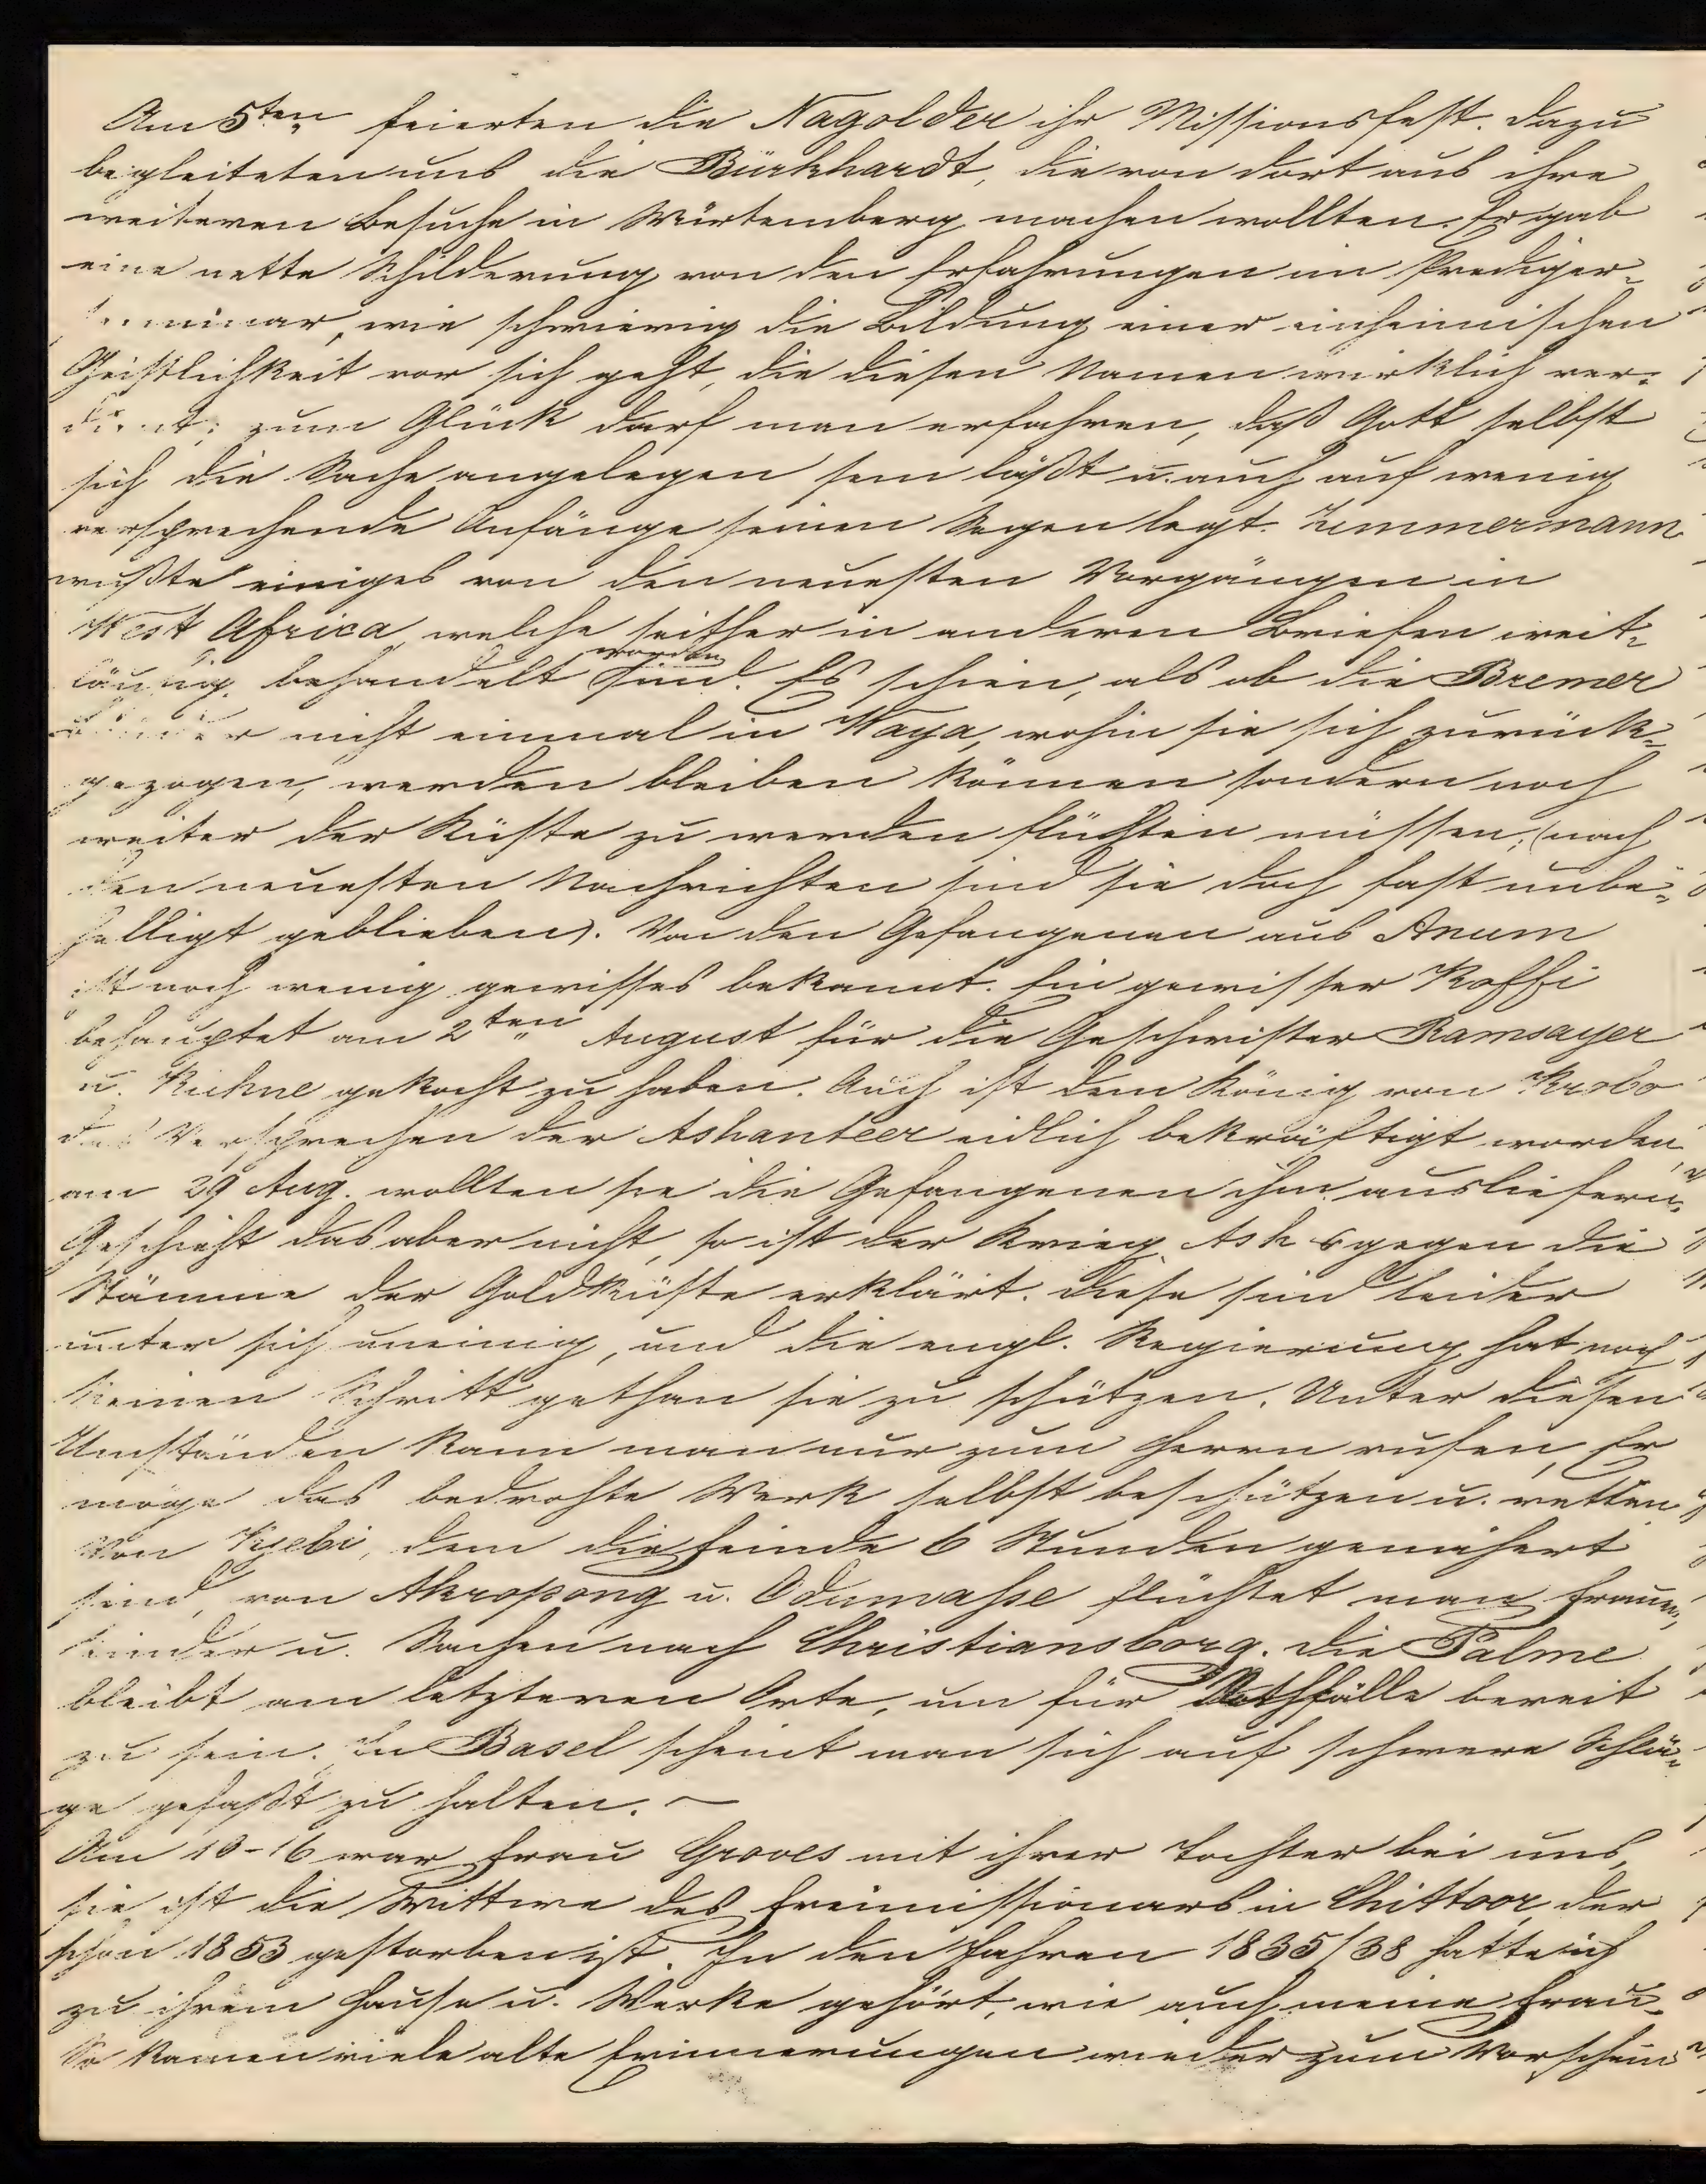 Am 5ten feierten die Nagolder ihr Missionsfest. Dazu
begleiteten uns die Bürkhardt, die von dort aus ihre
weiteren Besuche in Würtemberg machen wollten. Er gab
eine nette Schilderung von den Erfahrungen im Prediger-
seminar, wie schwierig die Bildung einer einheimischen
Geistlichkeit vor sich geht, die diesen Namen wirklich ver-
dient; zum Glück darf man erfahren, daß Gott selbst
sich die Sache angelegen sein läßt u. auch auf wenig
versprechende Anfänge seinen Segen legt. Zimmermann
wußte einiges von den neuesten Vorgängen in
West Africa, welche seither in anderen Briefen weit-
läufig behandelt worden sind. Es schien, als ob die Bremer
Brüder nicht einmal in Waya, wohin sie sich zurück-
gezogen, werden bleiben können sondern noch
weiter der Küste zu werden flüchten müssen; (nach
den neuesten Nachrichten sind sie doch fast unbe-
helligt geblieben). Von den Gefangenen aus Anum
ist noch wenig gewisses bekannt. Ein gewisser Koffi
behauptet am 2ten August für die Geschwister Ramsayer
u. Kühne gekocht zu haben. Auch ist dem König von Krobo
das Versprechen der Ashanteer eidlich bekräftigt worden,
am 29 Aug. wollten sie die Gefangenen ihm ausliefern.
Geschieht das aber nicht, so ist der Krieg Ash gegen die
Stämme der Goldküste erklärt. Diese sind leider
unter sich uneinig, und die engl. Regierung hat noch
keinen Schritt gethan sie zu schützen. Unter diesen
Umständen kann man nur zum Herrn rufen, Er
möge das bedrohte Werk selbst beschützen u. retten.
Von Kyebi, dem die Feinde 6 Stunden genähert
sind, von Akropong u. Odumasse flüchtet man Frauen,
Kinder u. Sachen nach Christiansborg. Die Palme
bleibt am letzteren Orte, um für Nothfälle bereit
zu sein. In Basel scheint man sich auf schwere Schlä-
ge gefaßt zu halten. —
Am 10-16 war Frau Groves mit ihrer Tochter bei uns,
sie ist die Wittwe des Freimissionars in Chittoor, der
schon 1853 gestorben ist. In den Jahren 1835/38 hatte ich
zu ihrem Hause u. Werke gehört, wie auch meine Frau.
So kamen viele alte Erinnerungen wieder zum Vorschein